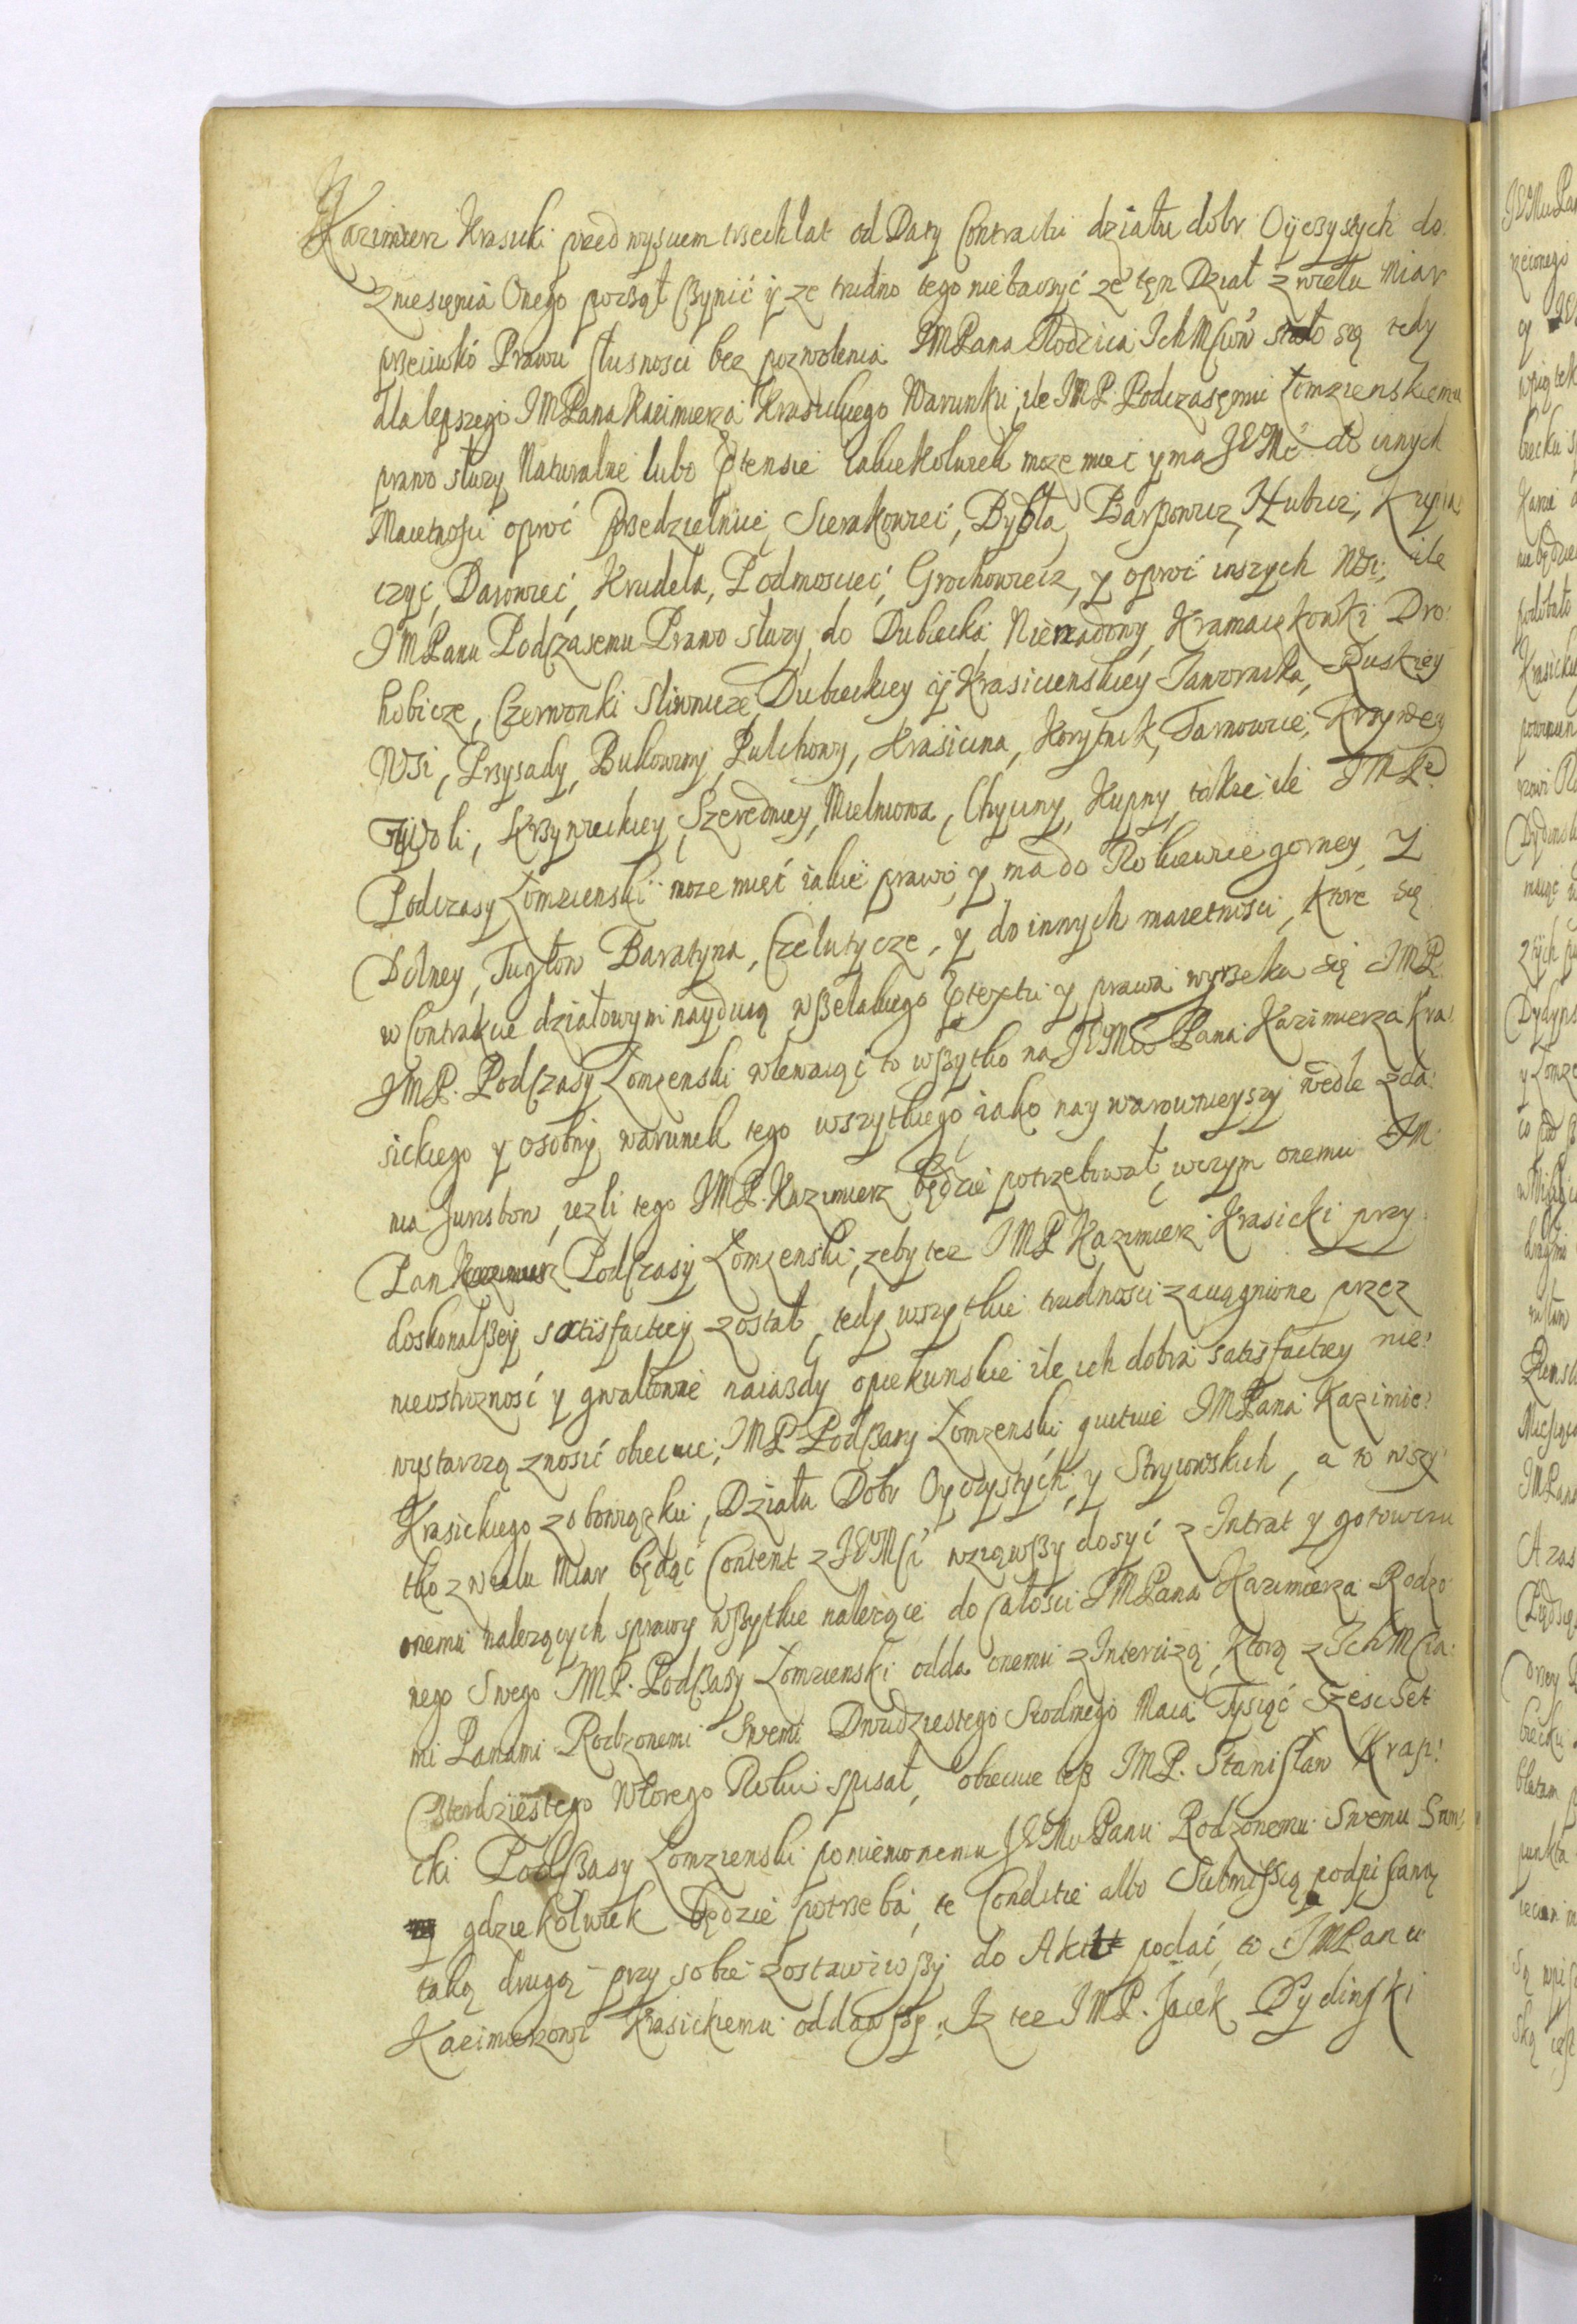 Kazimierz Krasicki przed wysciem trzech lat od Daty Contractu działu dobr Oÿczystych do
zniesięnia Onego począł czynić ÿ ze trudno tego niebaczyć ze tęn Dział z wielu miar
przeciwkó Prawu słusnosci bez pozwolenia IMPana Rodzica IchMsciów stało się tedy
dla lepszego IMPana Kazimierza Krasickiego Warunku, ile IMP. Podczasęmu Łomzienskiemu
prawo słuzy Naturalne lubo Ptensie iakiekolwiek moze mieć y ma JEMć do innych
Maietnosci oproć Posedzielnicé, Sierakowieć, Bybła, Barszowicz, Hubicz, Kupia
czyć, Darowieć, Krudeła, Podmoscieć, Grochowiecz, y oproć inszych Wsi, ile
IMPanu Podczasemu Prawo słuzy, do Dubiecka, Nienadowy, Kramarzkowki Dro:
hobicze, Czerwonki Sliwnicze, Dubieckiey ÿ Krasicienskiey Jawornika, Ruskiey
Wsi, Przysady, Bukowiny, Pulchowy, Krasicina, Korytnik, Tarnowcie, Krzywey
Woli, Krzywieckiey, Szeredniey, Mielniowa, Chyciny, Kupny, takze ile IMP.
Podczasy Łomzienski moze mieć iakie prawo, y ma do Rokiewcie gorney y
Dolney, Tugłow Baratyna, Czelutycze, y do innych maietnosci, ktore się
w Contrakcie działowym nayduią wszelakiego Ptextu y prawa wyrzeka się IMP.
IMP. Podczasy Łomzenski wlewaiąć to wszytko na JEMci Pana Kazimierza Kra:
sickiego y osobnÿ warunek tego wszytkiego iako naywarownieyszy wedle zda:
nia Juristow, iezli tego IMP. Kazimierz będzie potrzebował, wczym onemu IM
Pan Podczasy Łomzenski, zeby tez IMP Kazimierz Krasicki przy
doskonalszey satisfactiey został, tedy wszytkie trudnosci zaciągnione przez
nieostrozność y gwałtowne naiazdy opiekunskie ile ich dobra satisfactiey nie:
wystarczą znosić obiecuie, IMP. Podczasy Łomzenski quituie IMPana Kazimie:
Krasickiego z obowiązku, Działu Dobr Oyczystych, y Stryiowskich, a to wszy
tko z wielu miar będąć Content z JEMCi wziąwszy dosyć z Intrat y gotowizn
onemu nalezących sprawy wszytkie nalezące do całosci IMPana Kazimierza Rodzo:
nego Swego IMP. Podczasy Łomzienski odda onemu z Intercizą, ktorą z IchMscia:
mi Panami Rodzonemi Swemi Dwudziestego Siodmego Maia Tysiąć Szescset
Czterdziestego Wtorego Roku spisał, obiecuie tesz IMP. Stanisław Krasi:
cki Podczasy Łomzienski pomienionemu JEMci Panu Rodzonemu Swemu
gdziekolwiek będzie potrzeba, te Conditie albo Submissią podpisaną
taką drugą przy sobie zostawiwszy do Akt podać, to IMPanu
Kazimierzowi Krasickiemu oddawszy. Iz tez IMP. Jacek Dydinski